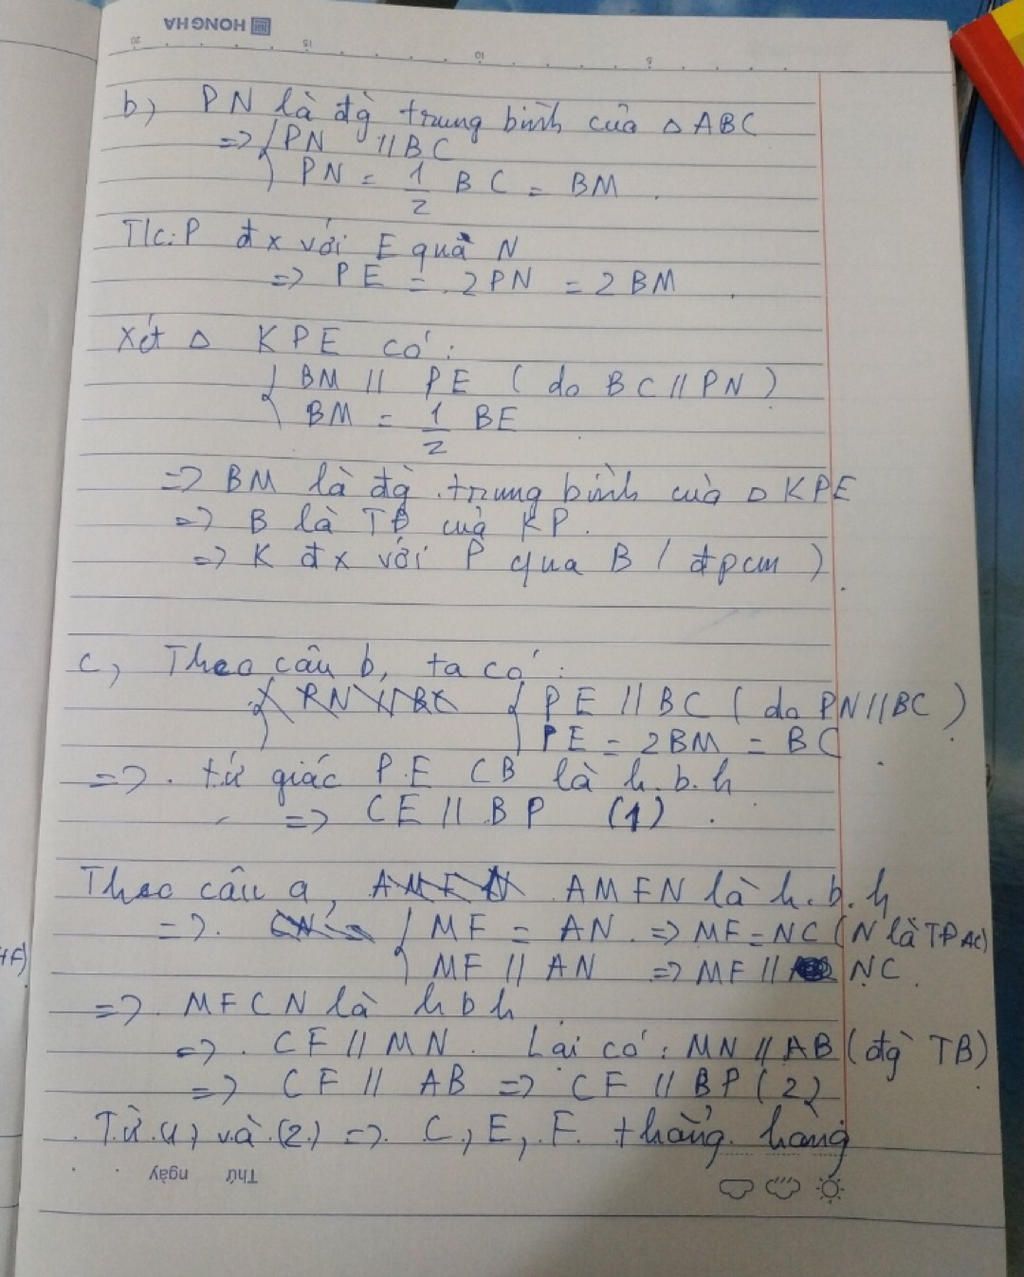 HONGHA
20 15 10 5
b) PN là đg trung bình của △ ABC
=> { PN // BC
PN = 1/2 BC = BM.
T/c: P đx với E qua N
=> PE = 2PN = 2BM.
Xét △ KPE có:
{ BM // PE (do BC // PN)
BM = 1/2 BE
=> BM là đg trung bình của △ KPE
=> B là TĐ của KP.
=> K đx với P qua B (đpcm).
c, Theo câu b, ta có:
{ PE // BC (do PN // BC)
PE = 2BM = BC.
=> tứ giác PECB là h.b.h
=> CE // BP (1).
Theo câu a, AMFN là h.b.h
=> { MF = AN => MF = NC (N là TĐ AC)
HF)
MF // AN => MF // NC.
=> MFCN là hbh
=> CF // MN. Lại có: MN // AB (đg TB)
=> CF // AB => CF // BP (2)
Từ (1) và (2) => C, E, F thẳng hàng
Thứ ngày